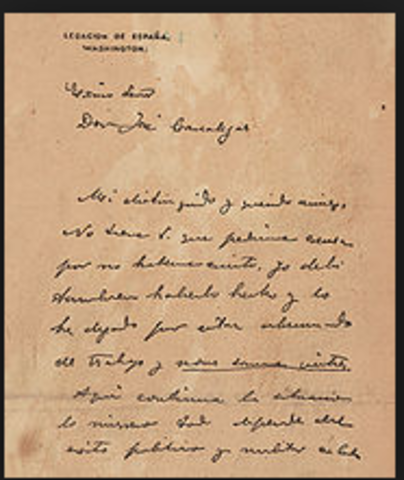 LEGACION DE ESPAÑA,
WASHINGTON.
Excmo Señor
Don José Canalejas
Mi distinguido y querido amigo,
No tiene V. que pedirme excusas
por no haberme escrito, yo debí
también haberlo hecho y lo
he dejado por estar abrumado
de trabajo y nous sommes quittes.
Aquí continua la situacion
lo mismo todo depende del
exito politico y militar en Cuba